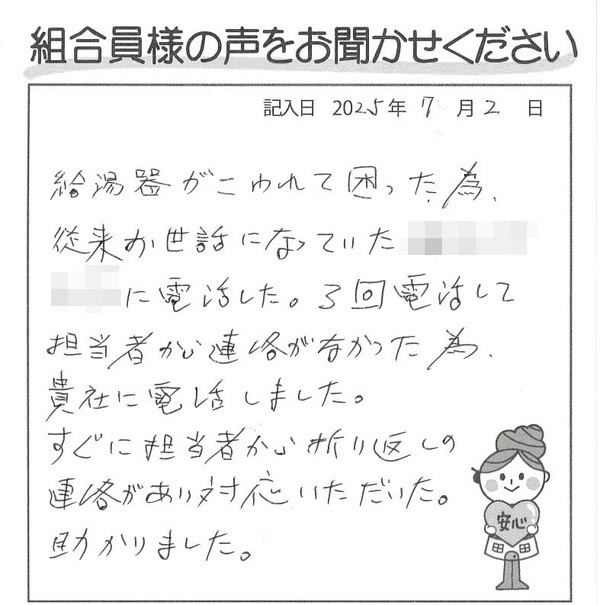 組合員様の声をお聞かせください
記入日 2025年 7 月 2 日
給湯器がこわれて困った為、
従来お世話になっていた
に電話した。3回電話して
担当者から連絡がなかった為、
貴社に電話しました。
すぐに担当者から折り返しの
連絡があり対応いただいた。
助かりました。
安心